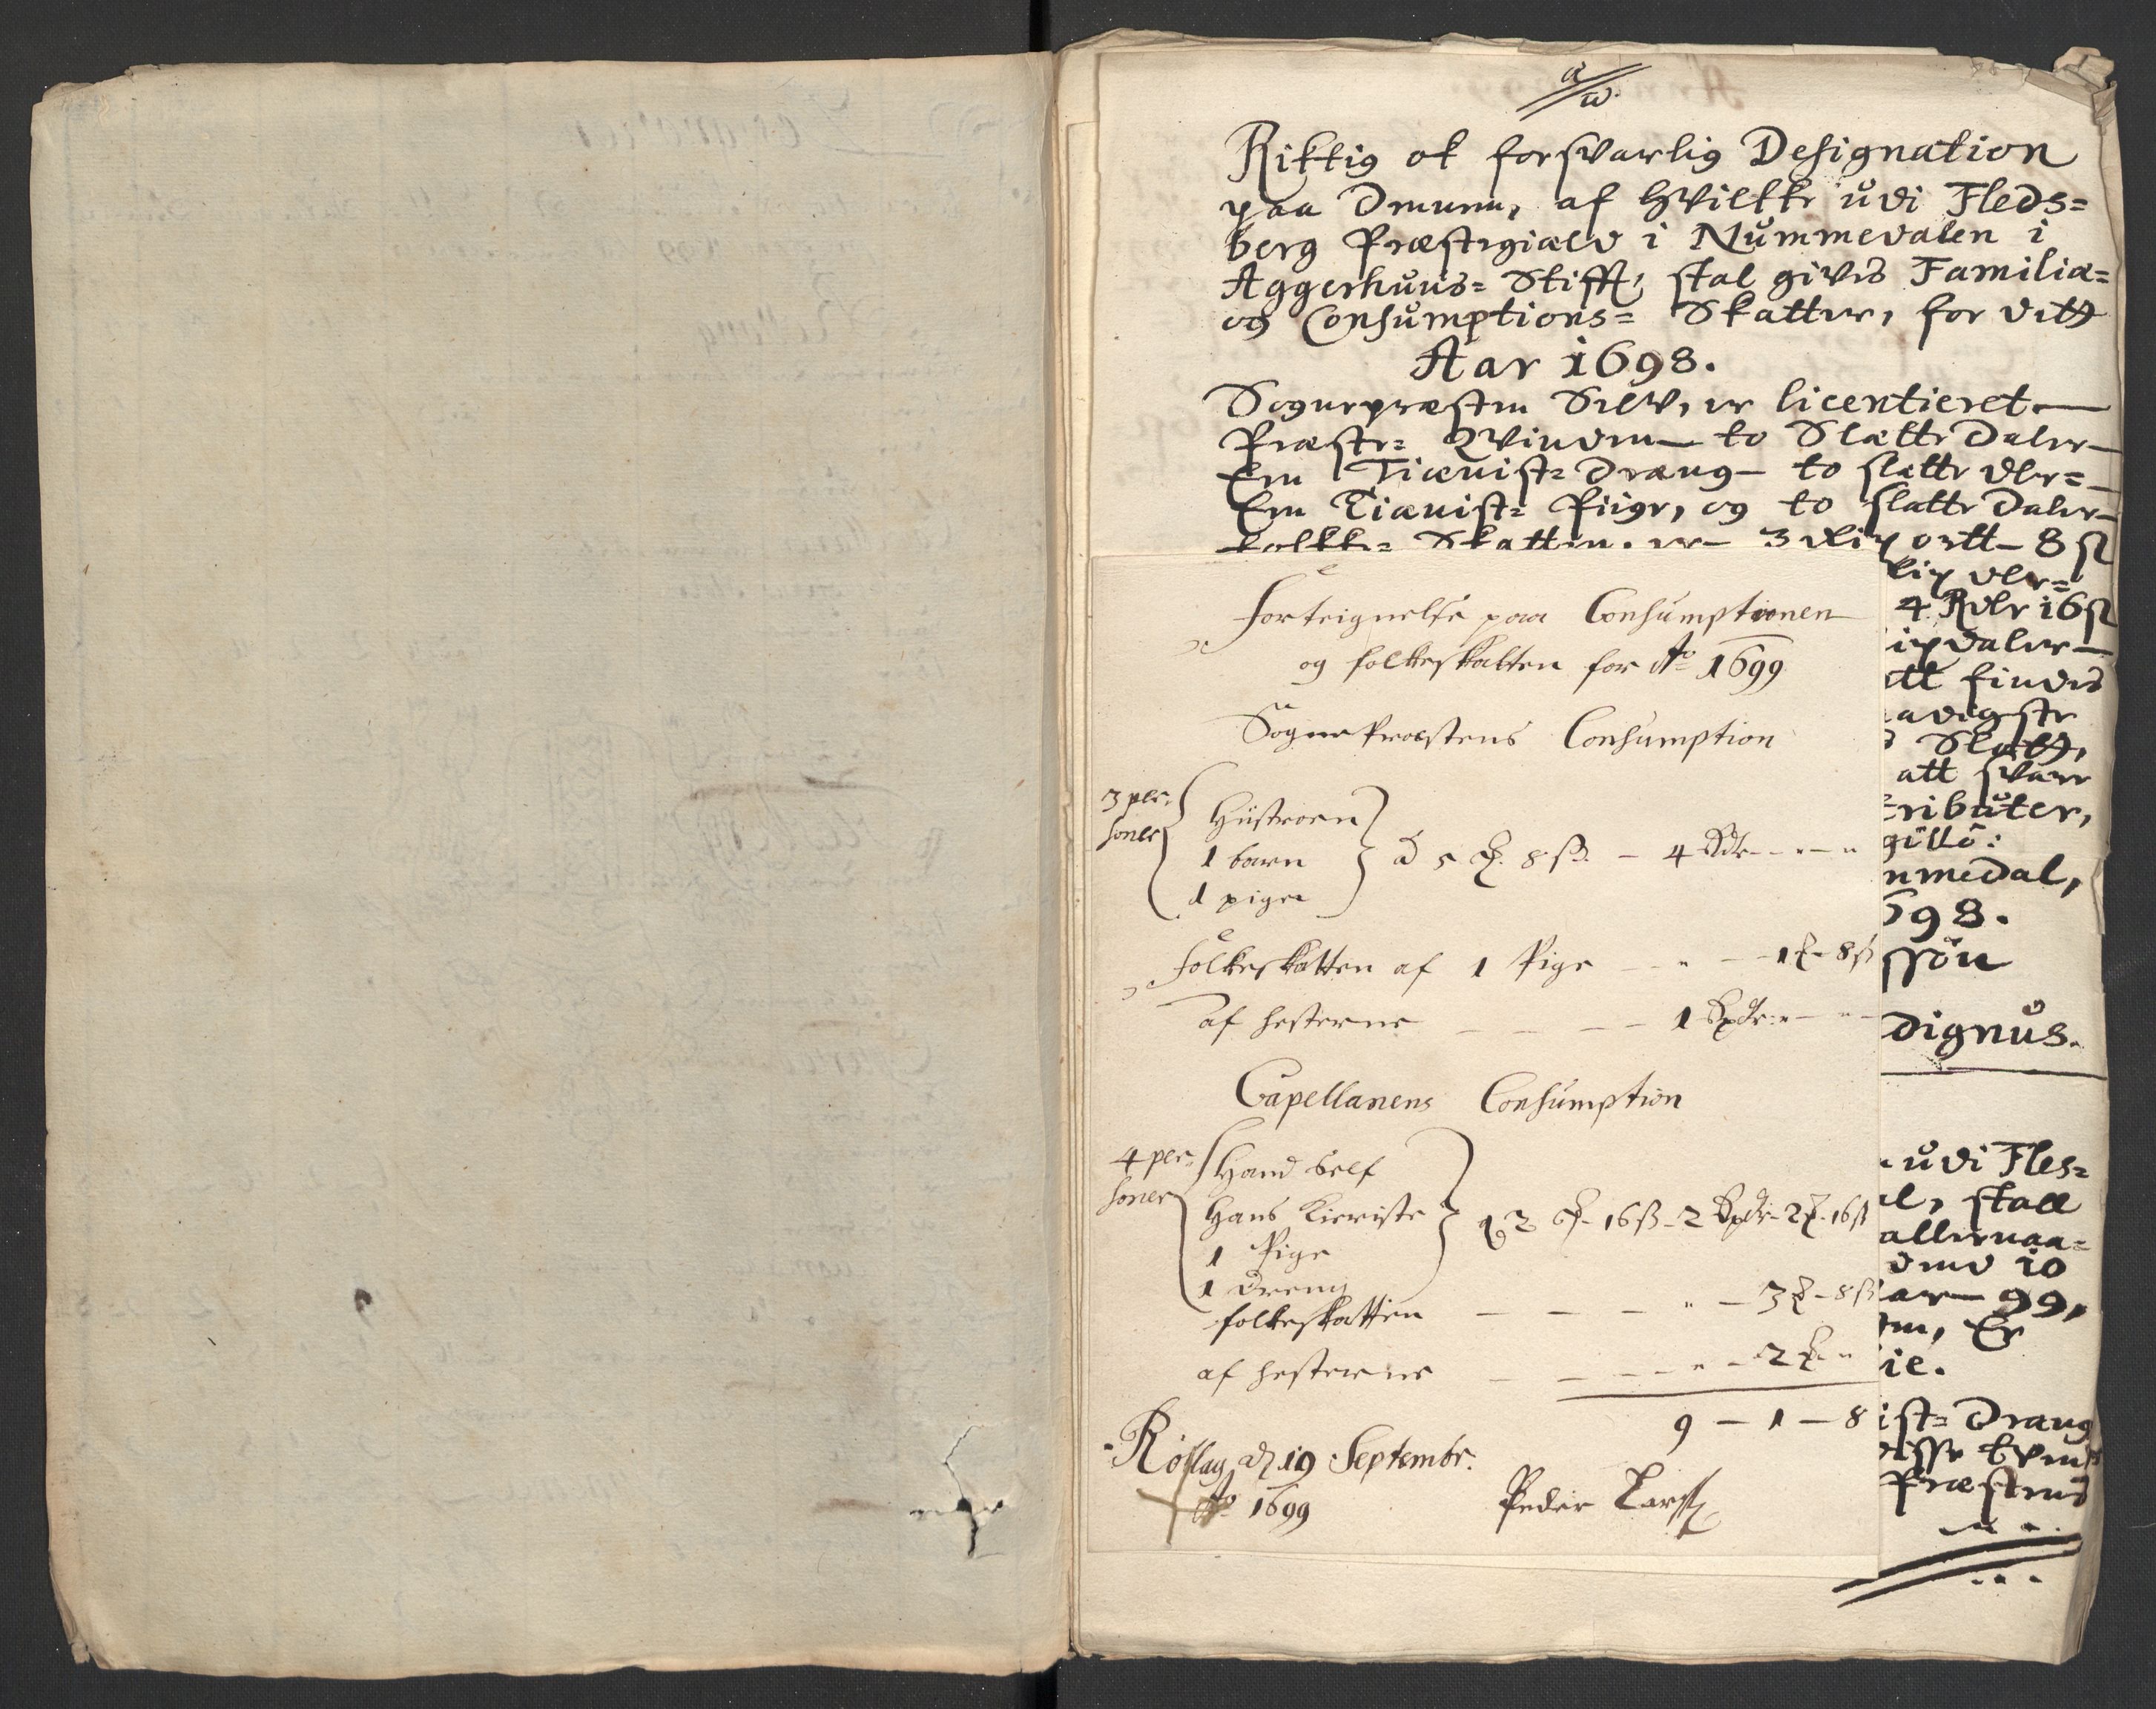 Riktig ok forsvarlig Designation
paa dennem, af hvilkke udi Fleds=
berg Præstegield i Nummedalen i
Aggerhuus= Stifft, skal givis Familiæ=
og Consumptions= Skatter, for dett
Aar 1698.
Sognepræsten Selv, er licentieret
Præste= Qvinden to Slætte Daler
Een Tiænist= Dræng to slette dlr=
Een Tiænist= Piige, og to slette Daler
folkke= Skatten. er 3 ortt 8 ß
dlr=
4 Rdlr 16 ß
ixdaler
ett findis
adigste
Slett,
att svare
tributer,
gillö:
nmedal,
698.
ssön
dignus.
udi Fles=
al, skall
allernaa=
10
aar 99,
Er
ie.
ist= Dræng
Præstens
Forteignelse paa Consumptionen
og folkeskatten for Ao 1699
SognePræstens Consumption
3 per=
soner
Hustroen
1 barn
1 pige
à 5 ꝛ. 8 ß. - 4 Rdr
Folkeskatten af 1 Pige - " - 1 - 8 ß
af hesterne - - - - 1 Rixdr
Capellanens Consumption
4 per=
soner
Hand Self
Hans Kieriste
1 Pige
1 Dreng
2 16 ß - 2 Rixdr - 2 - 16 ß
folkeskatten - - - " - 3 - 8 ß
af hesterne - - - " - 2 "
9 - 1 - 8
Rollag d. 19 Septembr.
Ao 1699
Peder Larss